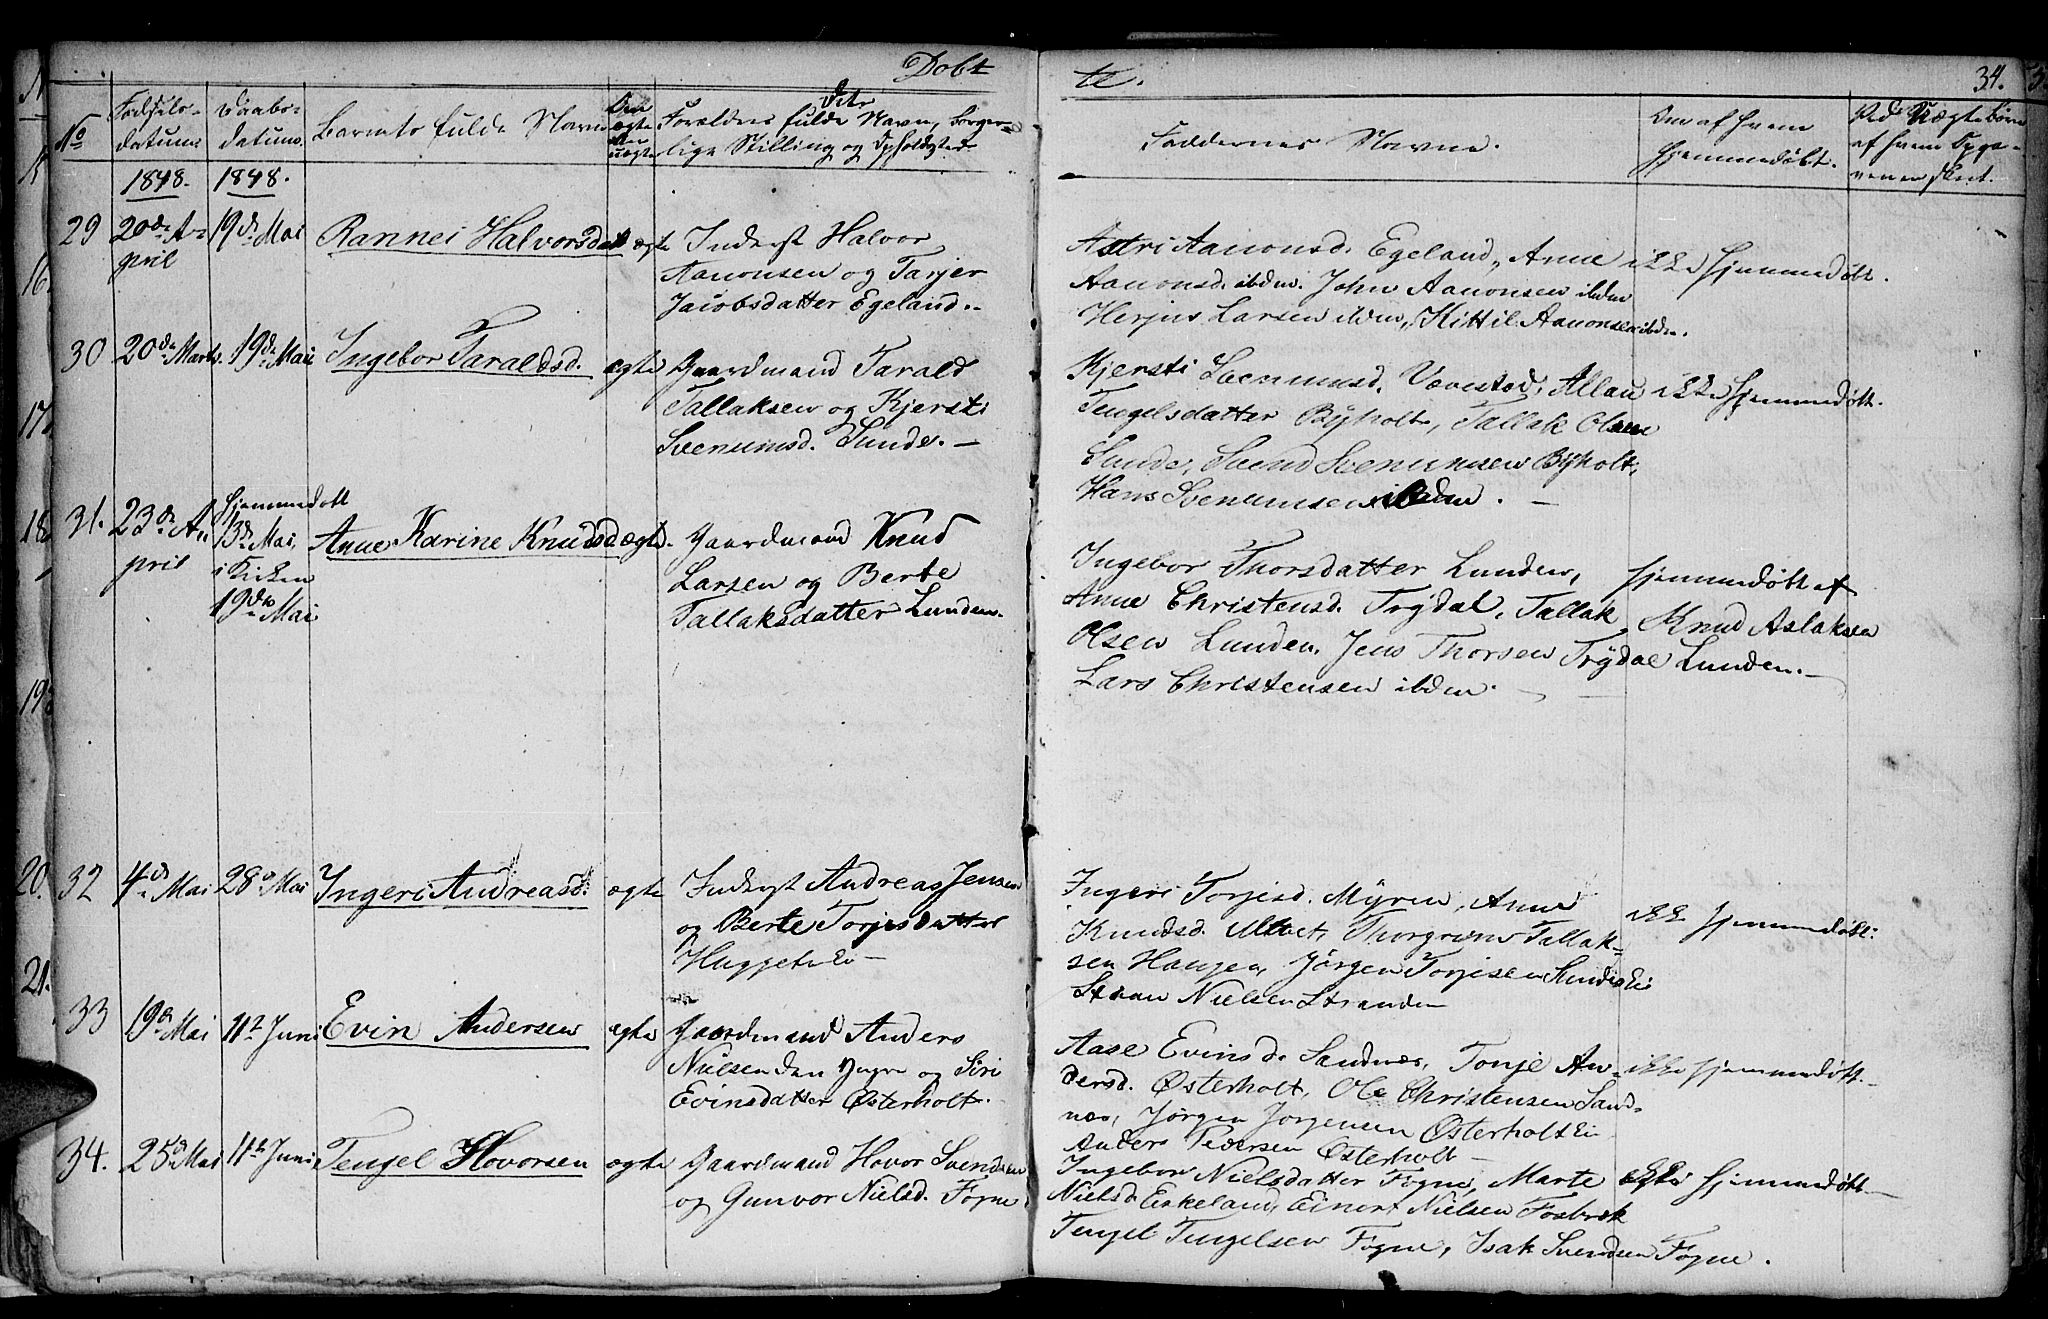 Døbt
te. 34.
No
Fødsels-
datum
Daabs-
datum
Barnets fulde Navn
Om
ægte
eller
uægte
Forældres fulde Navn, borger-
lige Stilling og Opholdsted
Faddernes Navne.
Om af hvem
hjemmedøbt.
Ved Uægte børn
af hvem Opga-
ven er skeet.
1848. 1848.
29 20de A-
pril
19de Mai
Rannei Halvorsdatt
ægte
Inderst Halvor
Aanonsen og Tarjer
Jacobsdatter Egeland.
Astri Aanonsd. Egeland, Anne
Aanonsd. ibdm. John Aanonsen ibdm
Herjus Larsen ibdm, Kittil Aanonsen ibdm.
ikke hjemmedøbt.
30 20de Marts. 19de Mai
Ingebor Taraldsd.
ægte
Gaardmand Tarald
Tallaksen og Kjersti
Svenumsd. Sunde. —
Kjersti Svenumsd. Vævestad, Allau
Tengelsdatter Byholt, Tallak Olsen
Sunde, Svend Svenumsen Byholt,
Hans Svenumsen ibdm. —
ikke hjemmedøbt.
31. 23de A-
pril
hjemmedøbt
13de Mai,
i Kirken
19de Mai
Anne Karine Knudsd
ægte.
Gaardmand Knud
Larsen og Berte
Tallaksdatter Lunden.
Ingebor Thorsdatter Lunden,
Anne Christensd. Trydal, Tallak
Olsen Lunden, Jens Thorsen Trydal
Lars Christensen ibdm.
hjemmedøbt af
Knud Aslaksen
Lunden. —
32 4de Mai 28de Mai
Ingeri Andreasd.
ægte
Inderst Andreas Jensen
og Berte Torjesdatter
—
Ingeri Torjesd. Myren, Anne
Knudsd. Thorgrim Tallak-
sen Haugen, Jørgen Torjesen
Nielsen Stranden
ikke hjemmedøbt.
33 19de Mai 11te Juni
Evin Andersen
ægte
Gaardmand Anders
Nielsen den yngre og Siri
Evinsdatter Østerholt.
Aase Evinsd. Sandnæs, Tonje An-
dersd. Østerholt, Ole Christensen Sand-
næs, Jørgen Jørgensen
Anders Pedersen Østerholt —
ikke hjemmedøbt. —
34. 25de Mai 11te Juni
Tengel Hovorsen
ægte
Gaardmand Hovor Svendsen
og Gunvor Nielsd. Fogne
Ingebor Nielsdatter Fogne, Marte
Nielsd. Eskeland, Einert Nielsen Fosbæk
Tengel Tengelsen Fogne, Isak Svendsen Fogne.
ikke hjemmedøbt —